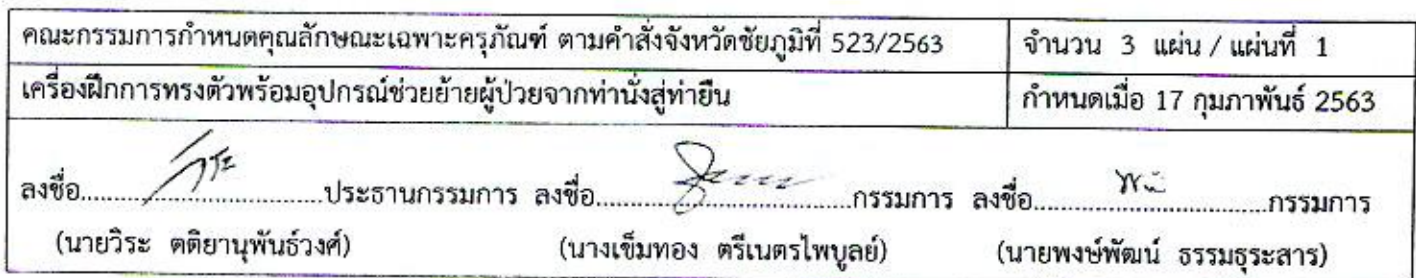 คณะกรรมการกำหนดคุณลักษณะเฉพาะครุภัณฑ์ ตามคำสั่งจังหวัดชัยภูมิที่ 523/2563 จำนวน 3 แผ่น / แผ่นที่ 1
เครื่องฝึกการทรงตัวพร้อมอุปกรณ์ช่วยย้ายผู้ป่วยจากท่านั่งสู่ท่ายืน กำหนดเมื่อ 17 กุมภาพันธ์ 2563
ลงชื่อ..................................ประธานกรรมการ ลงชื่อ....................................กรรมการ ลงชื่อ.................................กรรมการ
(นายวิระ ตติยานุพันธ์วงศ์) (นางเข็มทอง ตรีเนตรไพบูลย์) (นายพงษ์พัฒน์ ธรรมธุระสาร)